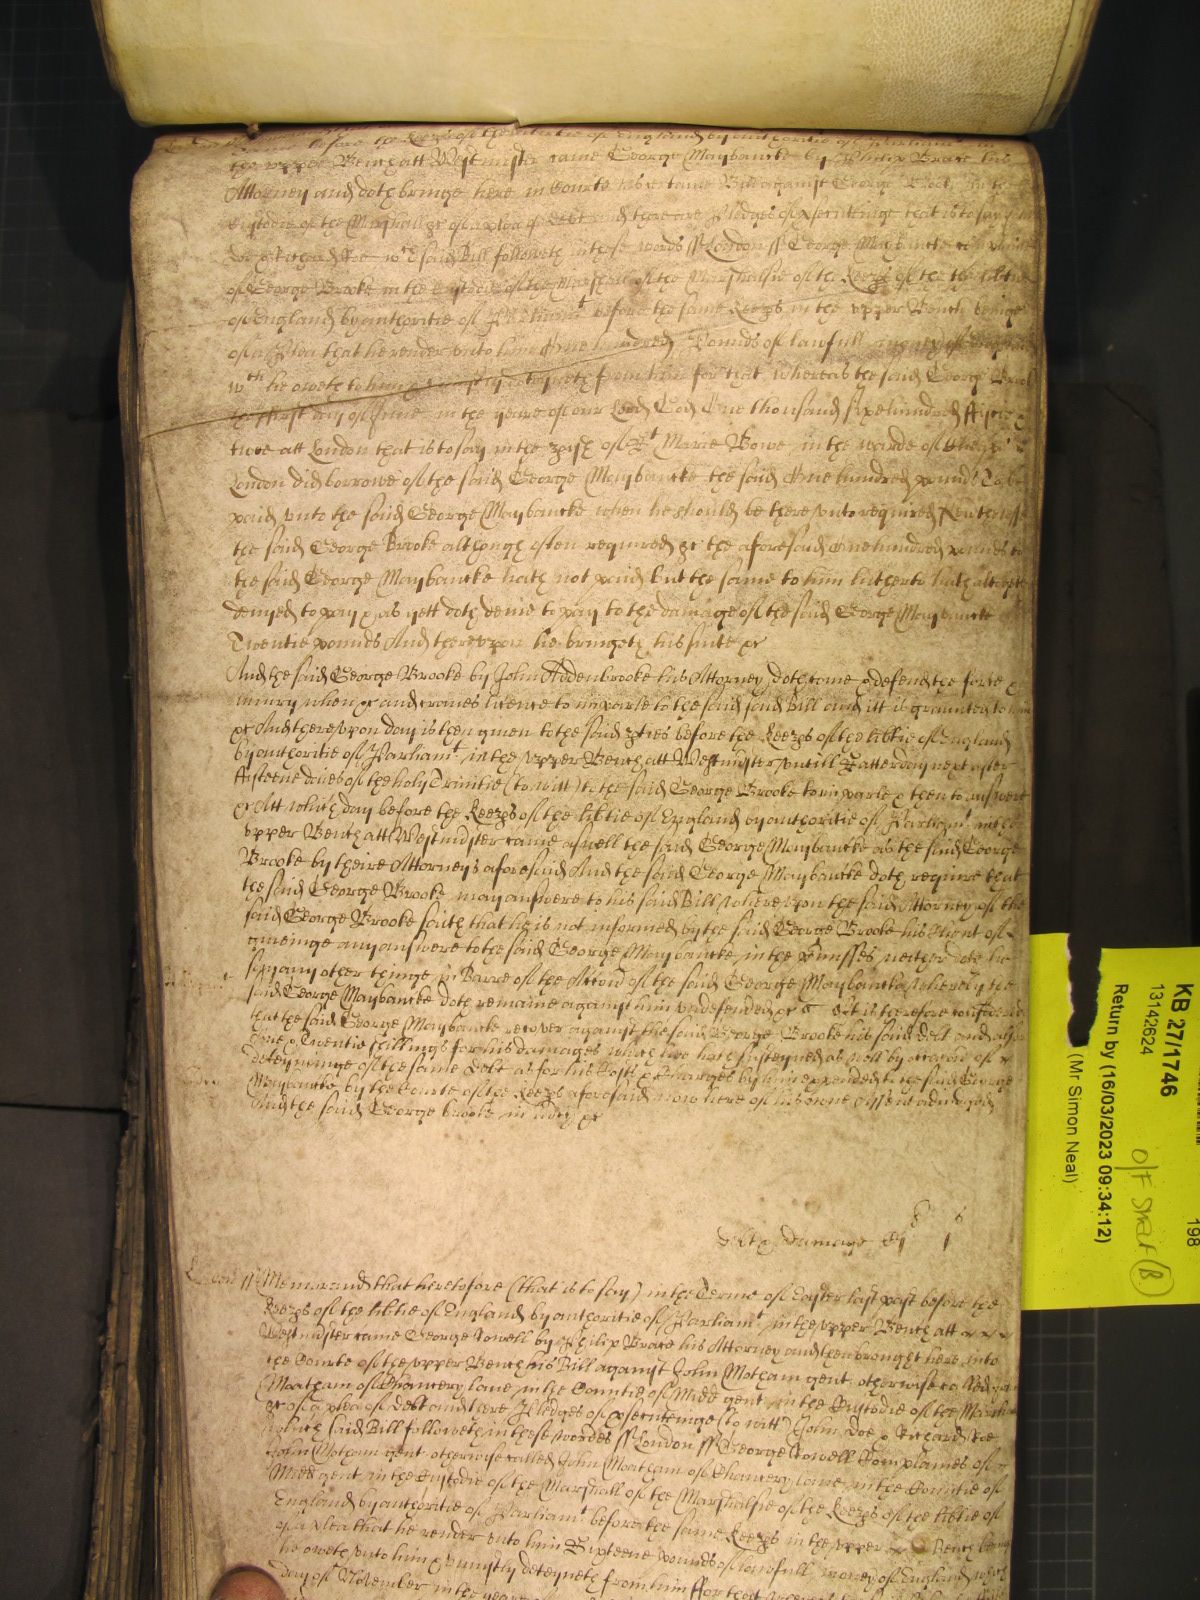 before the Keeps of the libtie of England by authoritie of Parliamt in
the upper Bench att Westminster came George Maybancke by Philip Brace his
Attorney and doth bringe here in Courte his certaine Bill against George Brooke in the
Custodie of the Marshall &c of a plea of debt and there are Pledges of prosecutinge that is to say John
Doe & Richard Roe wch said Bill followeth in these words ss London ss George Maybancke complaines
of George Brooke in the Custodie of the Marshall of the Marshalsie of the Keeps of the libtie
of England by authoritie of Parliament before the same Keeps in the upper Bench beinge
of a Plea that he render unto him One hundred Pounds of lawfull money of England
wch he oweth to him & uniustly deteyneth from him for that whereas the said George Brooke
the first day of June in the yeare of our Lord God One thousand six hundred fiftie &
twoe att London that is to say in the pish of St Marie Bowe in the warde of Cheape
London did borrowe of the said George Maybancke the said One hundred pounds To be
paid unto the said George Maybancke when he should be thereunto required Neverthelesse
the said George Brooke although often required &c the aforesaid One hundred pounds to
the said George Maybancke hath not paid but the same to him hitherto hath altogether
denyed to pay & as yett doth denie to pay to the damage of the said George Maybancke
Twentie pounds And thereupon he bringeth his suite &c
And the said George Brooke by John Addenbrooke his Attorney doth come & defend the force &
iniury when &c and craves licence to imparle to the said said Bill and itt is graunted to him
&c And thereupon day is then given to the said pties before the Keeps of the libtie of England
by authoritie of Parliamt in the upper Bench att Westminster untill Satterday next after
fifteene daies of the holy Trinitie (to witt) to the said George Brooke to imparle & then to answere
&c Att which day before the Keeps of the libtie of England by authoritie of Parliamt in the
upper Bench att Westminster came aswell the said George Maybancke as the said George
Brooke by theire Attorneys aforesaid And the said George Maybancke doth require that
the said George Brooke may answere to his said Bill, whereupon the said Attorney of the
said George Brooke saith that he is not informed by the said George Brooke his Client of
giveinge any answere to the said George Maybancke in the pmisses neither doth he
say any other thinge in Barre of the Accon of the said George Maybancke whereby the
said George Maybancke doth remaine against him undefended &c It is therefore considered
that the said George Maybancke recover against the said George Brooke his said debt and alsoe
One & Twentie shillings for his damages which hee hath susteyned as well by occacon of
deteyninge of the same Debt as for his Costs & Charges by him expended to the said George
Maybancke by the Courte of the Keeps aforesaid now here of his owne Assent adiudged
And the said George Brooke in mercy &c
debt & damage
Memorand that heretofore (that is to say) in the Terme of Easter last past before the
Keeps of the libtie of England by authoritie of Parliamt in the upper Bench att
Westminster came George Cowell by Philip Brace his Attorney and then brought here into
the Courte of the upper Bench his Bill against John Motham gent otherwise called John
Moatham of Chancery lane in the Countie of Midd gent in the Custodie of the Marshall
&c of a plea of debt and there Pledges of prosecutinge (to witt) John Doe & Richard Roe
which said Bill followeth in these wordes ss London ss George Cowell Complaines of
John Motham gent otherwise called John Moatham of Chancery lane in the Countie of
Midd gent in the Custodie of the Marshall of the Marshalsie of the Keeps of the libtie of
England by authoritie of Parliamt before the same Keeps in the upper Bench beinge
of a Plea that he render unto him Sixteene pounds of lawfull money of England which
he oweth unto him & uniustly deteyneth from him For that
day of November in the yeare
KB 27/1746
13142624
Return by (16/03/2023 09:34:12)
(Mr Simon Neal)
198